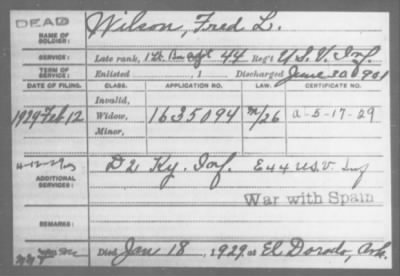 DEAD
NAME OF SOLDIER:
Wilson, Fred L.
SERVICE:
Late rank, 1 Lt. 44 Reg't U.S.V. Inf.
TERM OF SERVICE:
Enlisted , 1 Discharged June 30 1901
DATE OF FILING. CLASS. APPLICATION NO. LAW. CERTIFICATE NO.
Invalid,
1929 Feb 12 Widow, 1635094 M/26 a-5-17-29
Minor,
4-12-29
ADDITIONAL SERVICES:
D 2 Ky. Inf. E 44 U.S.V. Inf
War with Spain
REMARKS:
Died Jan 18, 1929, at El Dorado, Ark.